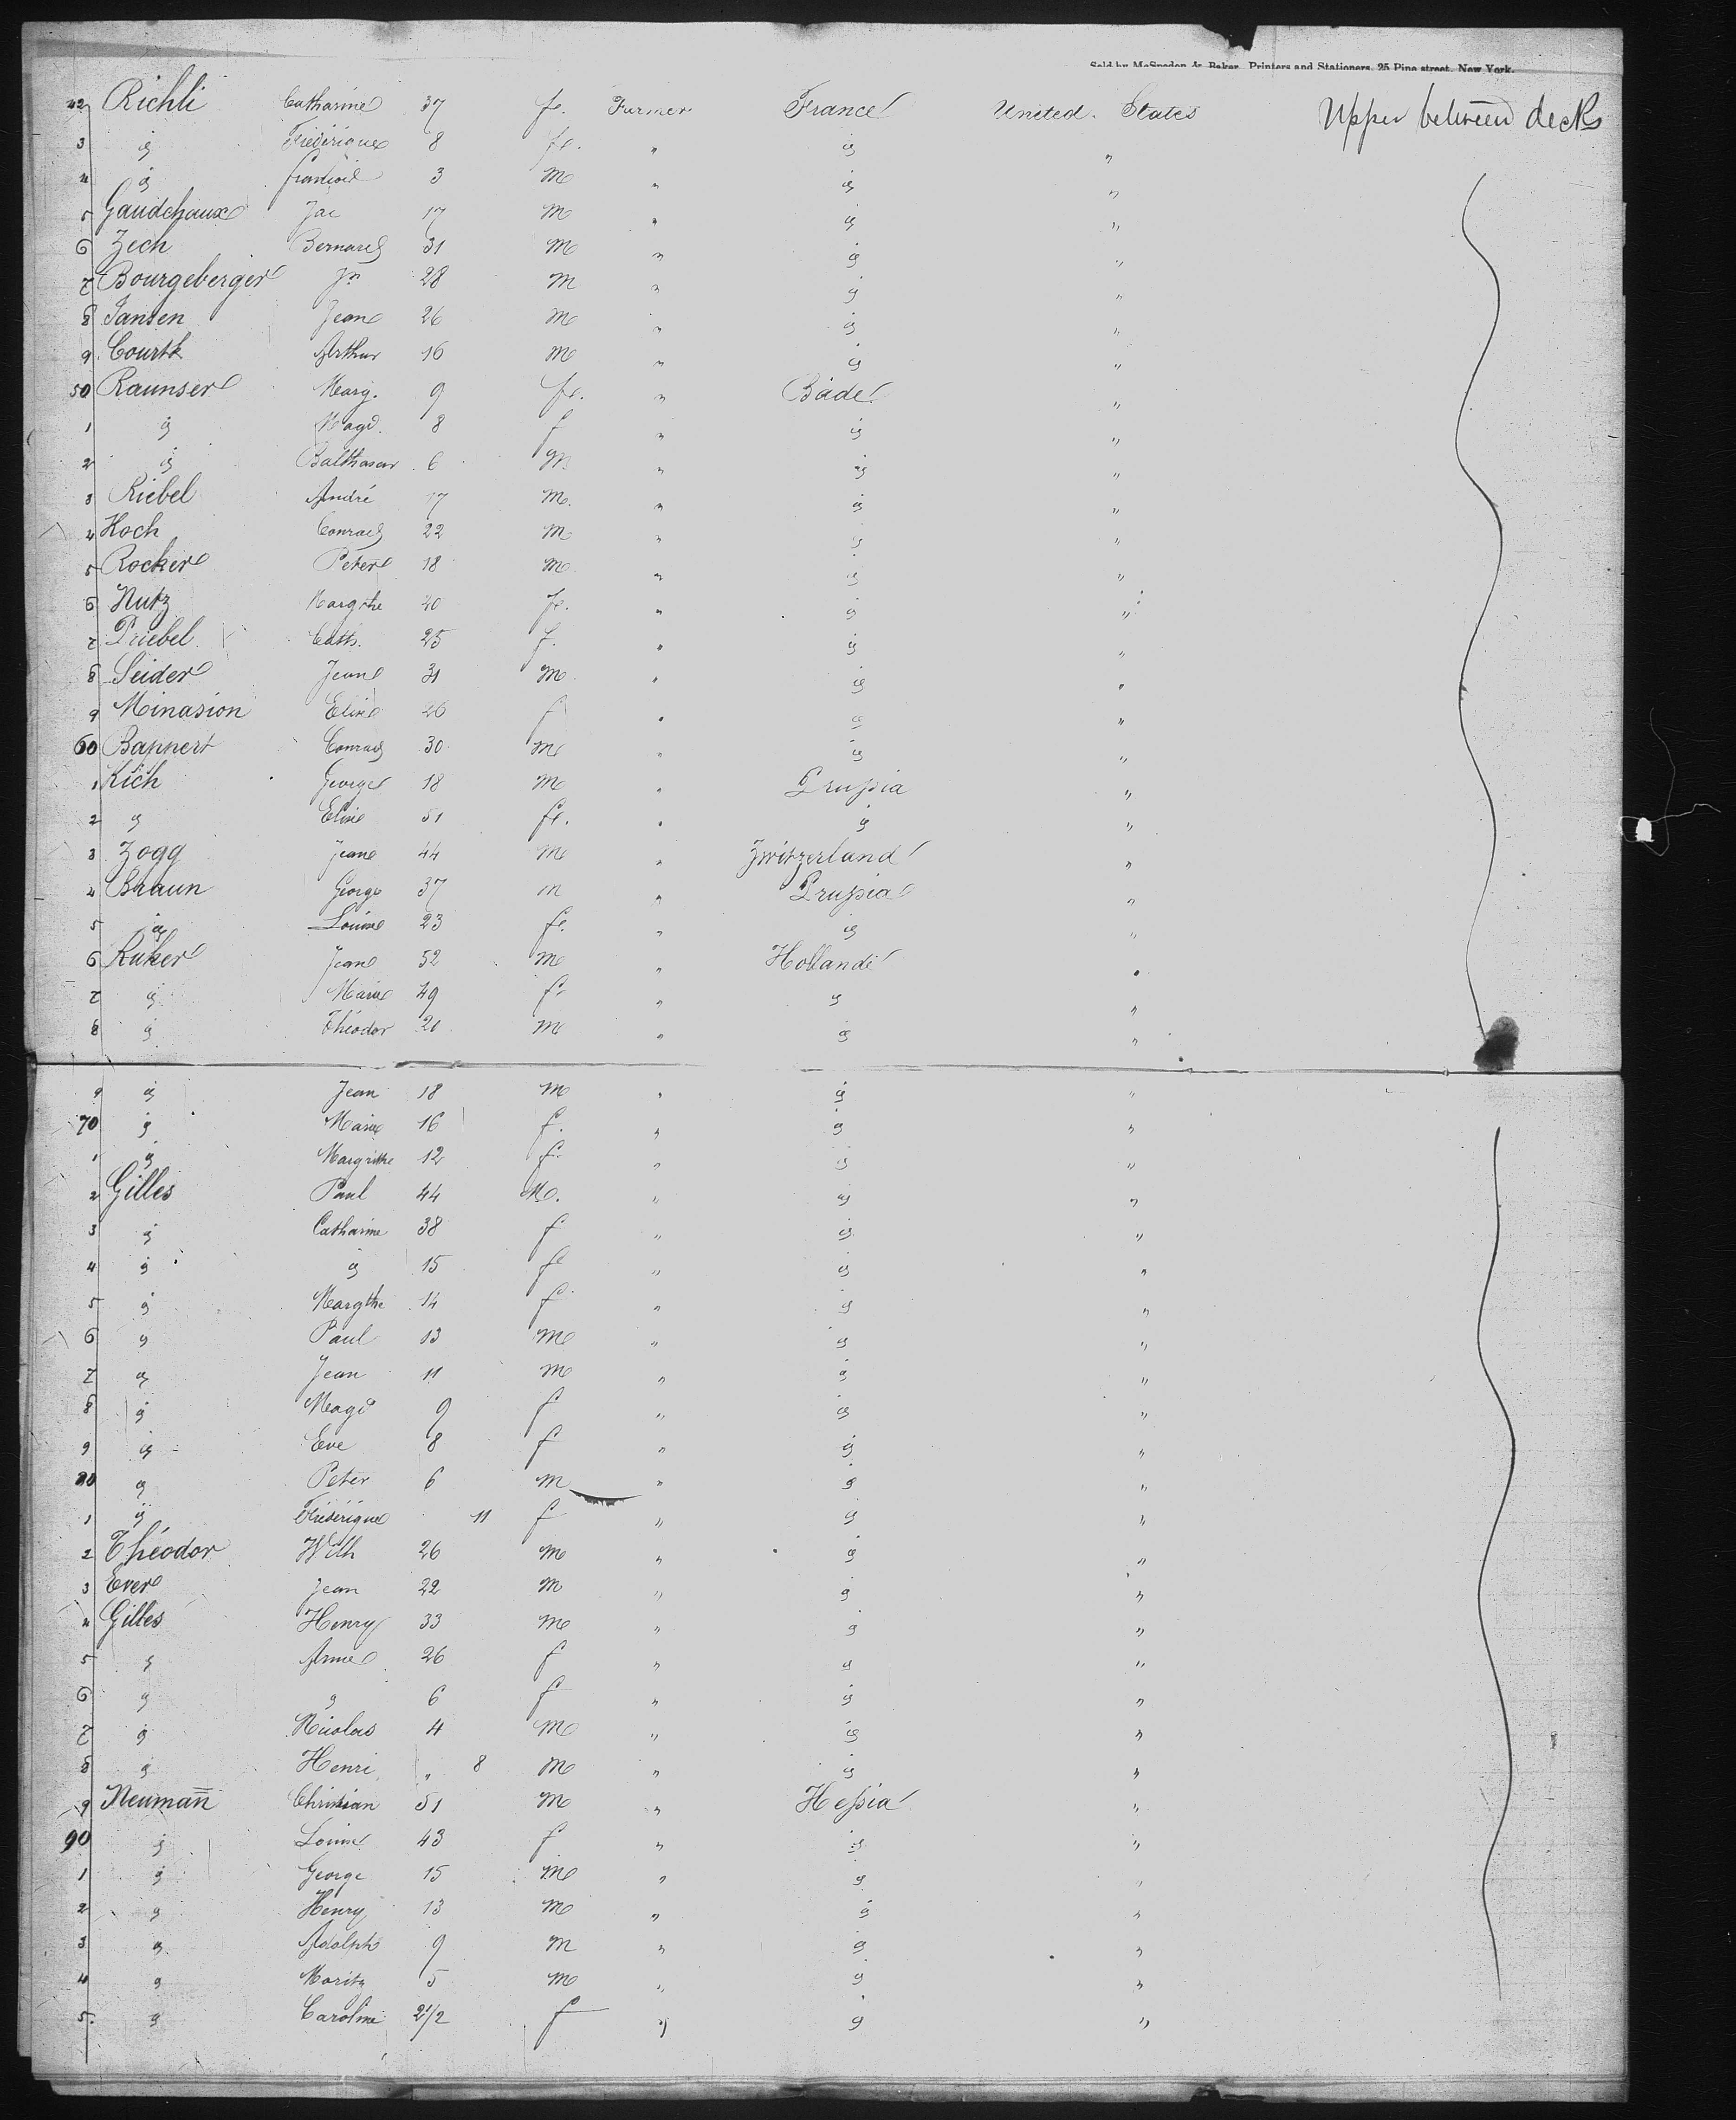 Sold by McSpedon & Baker, Printers and Stationers, 25 Pine street, New York.
42 Richli Catharine 37 fe. Farmer France United States Upper between decks
3 ij Frédérique 8 fe. " ij "
4 ij 3 m " ij "
5 Gaudchaux Jac 17 m " ij "
6 Zech Bernard 31 m " ij "
7 Bourgeberger Jn 28 m " ij "
8 Jansen Jean 26 m " ij "
9 Courtk Arthur 16 m " ij "
50 Raunser Marg. 9 fe. " Bade "
1 ij Magd. 8 f " ij "
2 ij Balthasar 6 m " ij "
3 Riebel André 17 m. " ij "
4 Koch Conrad 22 m " ij "
5 Rocker Peter 18 m " ij "
6 Nutz Margthe 20 fe. " ij "
7 Priebel Cath. 25 f. " ij "
8 Seider Jean 31 m. " ij "
9 Minasion Elise 26 f " ij "
60 Bappert Conrad 30 m " ij "
1 Kich George 18 m " Prussia "
2 ij Elise 51 fe. " ij "
3 Zogg Jean 44 m " Zwitzerland "
4 Braun George 37 m " Prussia "
5 ij Louise 23 fe. " ij "
6 Kuker Jean 52 m " Hollande "
7 ij Marie 49 f " ij "
8 ij Théodor 20 m " ij "
9 ij Jean 18 m " ij "
70 ij Marie 16 f. " ij "
1 ij Margrithe 12 f. " ij "
2 Gilles Paul 44 M. " ij "
3 ij Catharine 38 f " ij "
4 ij ij 15 fe " ij "
5 ij Margthe 14 f " ij "
6 ij Paul 13 m " ij "
7 ij Jean 11 m " ij "
8 ij Magd 9 f " ij "
9 ij Eve 8 f " ij "
80 ij Peter 6 m " ij "
1 ij Frédérique 11 f " ij "
2 Théodor Wilh 26 m " ij "
3 Ever Jean 22 m " ij "
4 Gilles Henry 33 m " ij "
5 ij Anne 26 f " ij "
6 ij ij 6 f " ij "
7 ij Nicolas 4 m " ij "
8 ij Henri " 8 m " ij "
9 Neumann Christian 51 m " Hessia "
90 ij Louise 43 f " ij "
1 ij George 15 m " ij "
2 ij Henry 13 m " ij "
3 ij Adolph 9 m " ij "
4 ij Moritz 5 m " ij "
5. ij Caroline 2 1/2 f " ij "